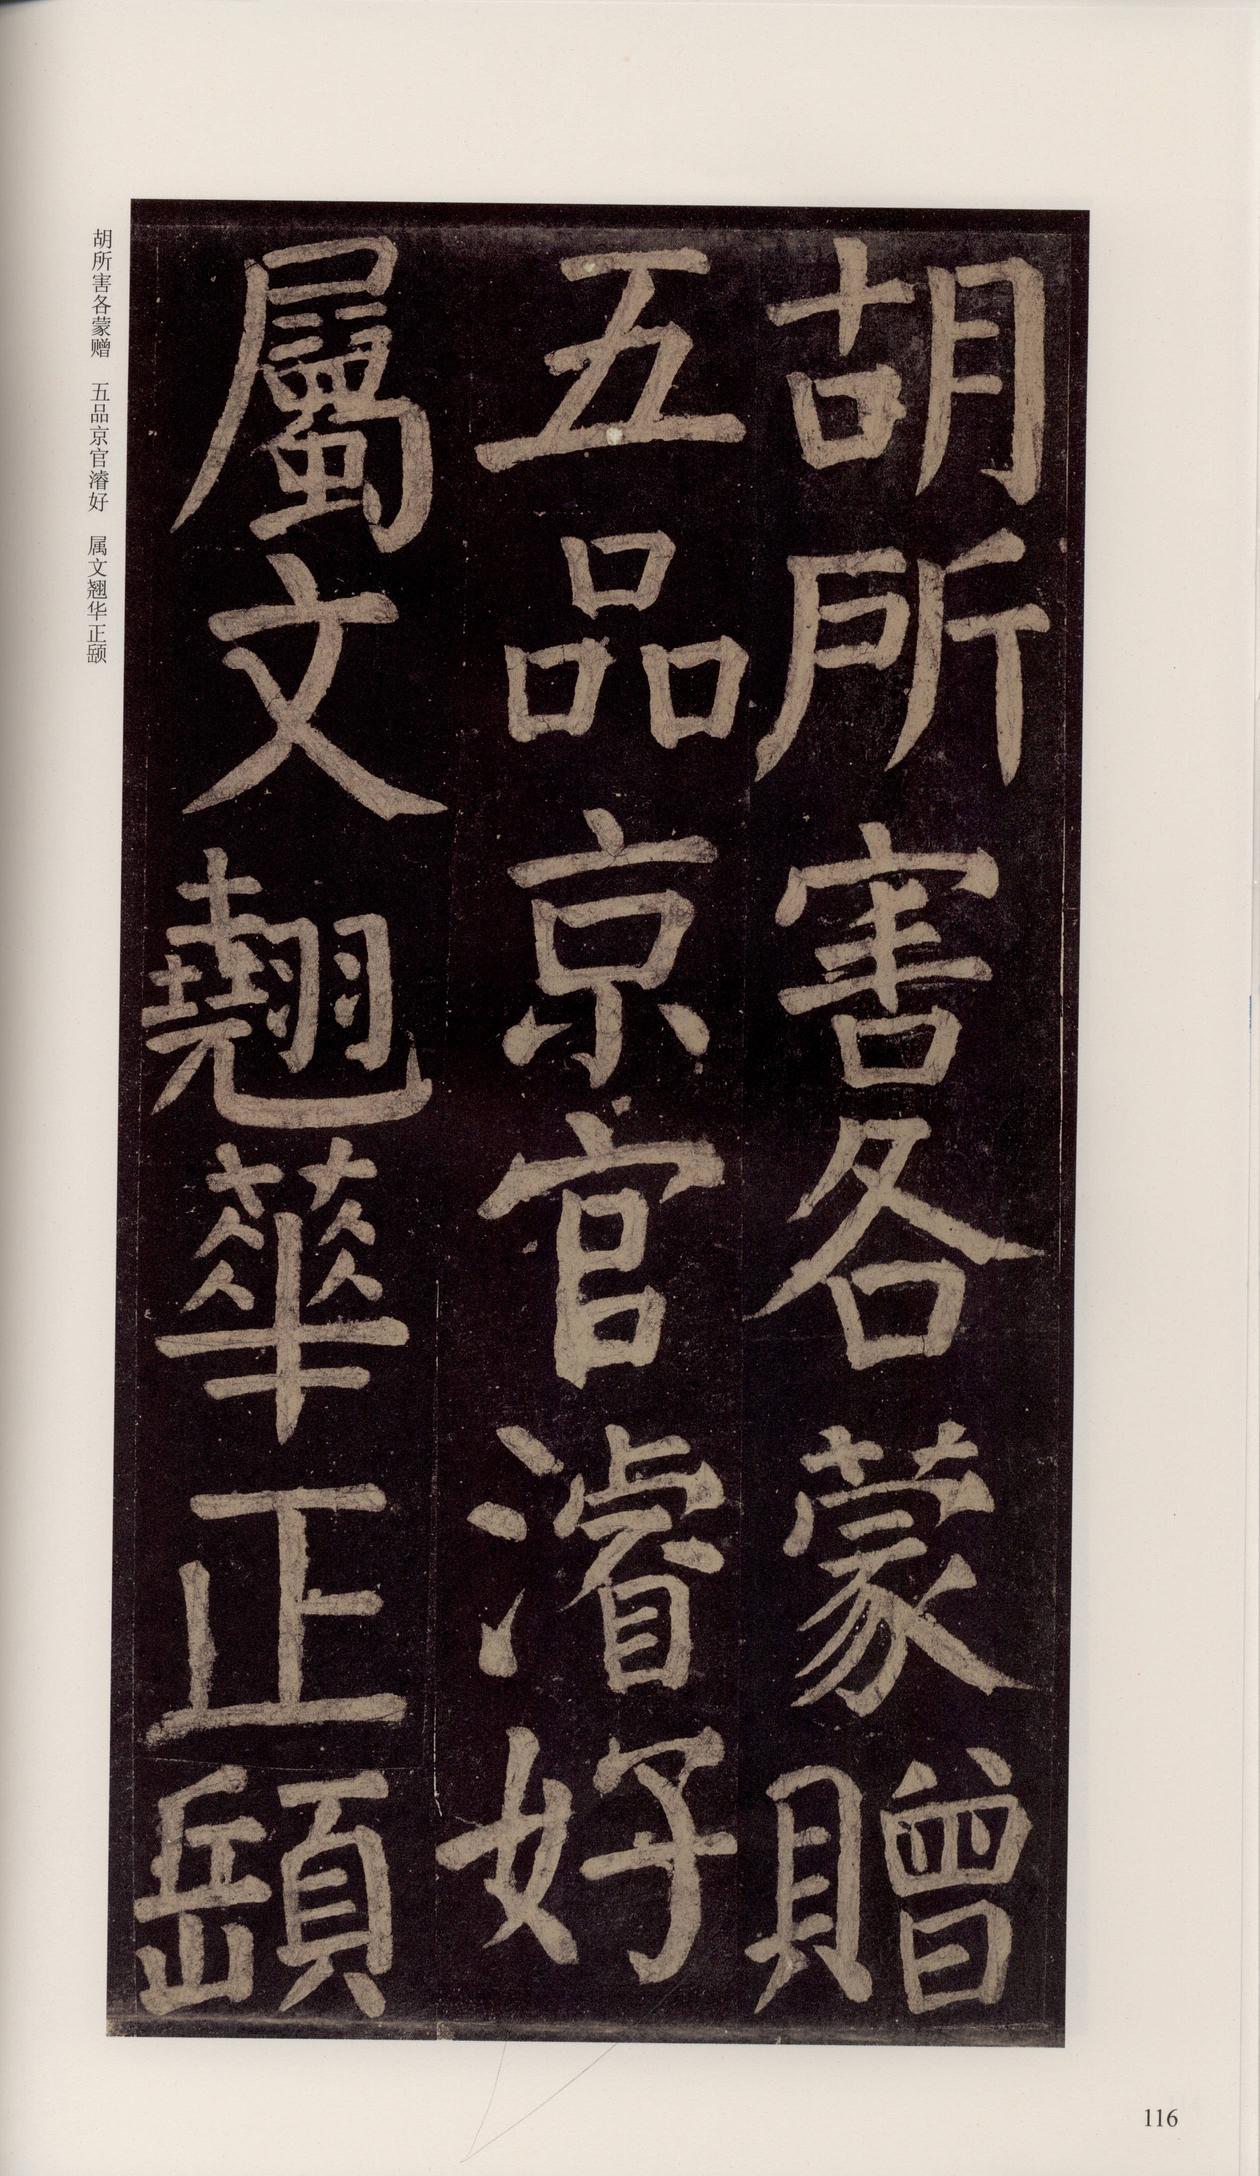 胡所害各蒙贈
五品京官濬好
屬文翹華正頣
胡所害各蒙赠　五品京官濬好　属文翘华正
116